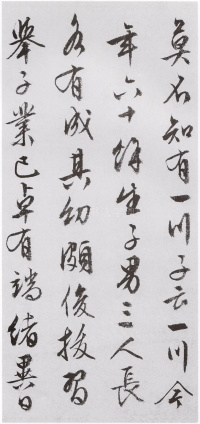 莫不知有一川子云一川今
年六十餘生子男三人長
各有成其幼頗俊拔習
舉子業已卓有端緒異日